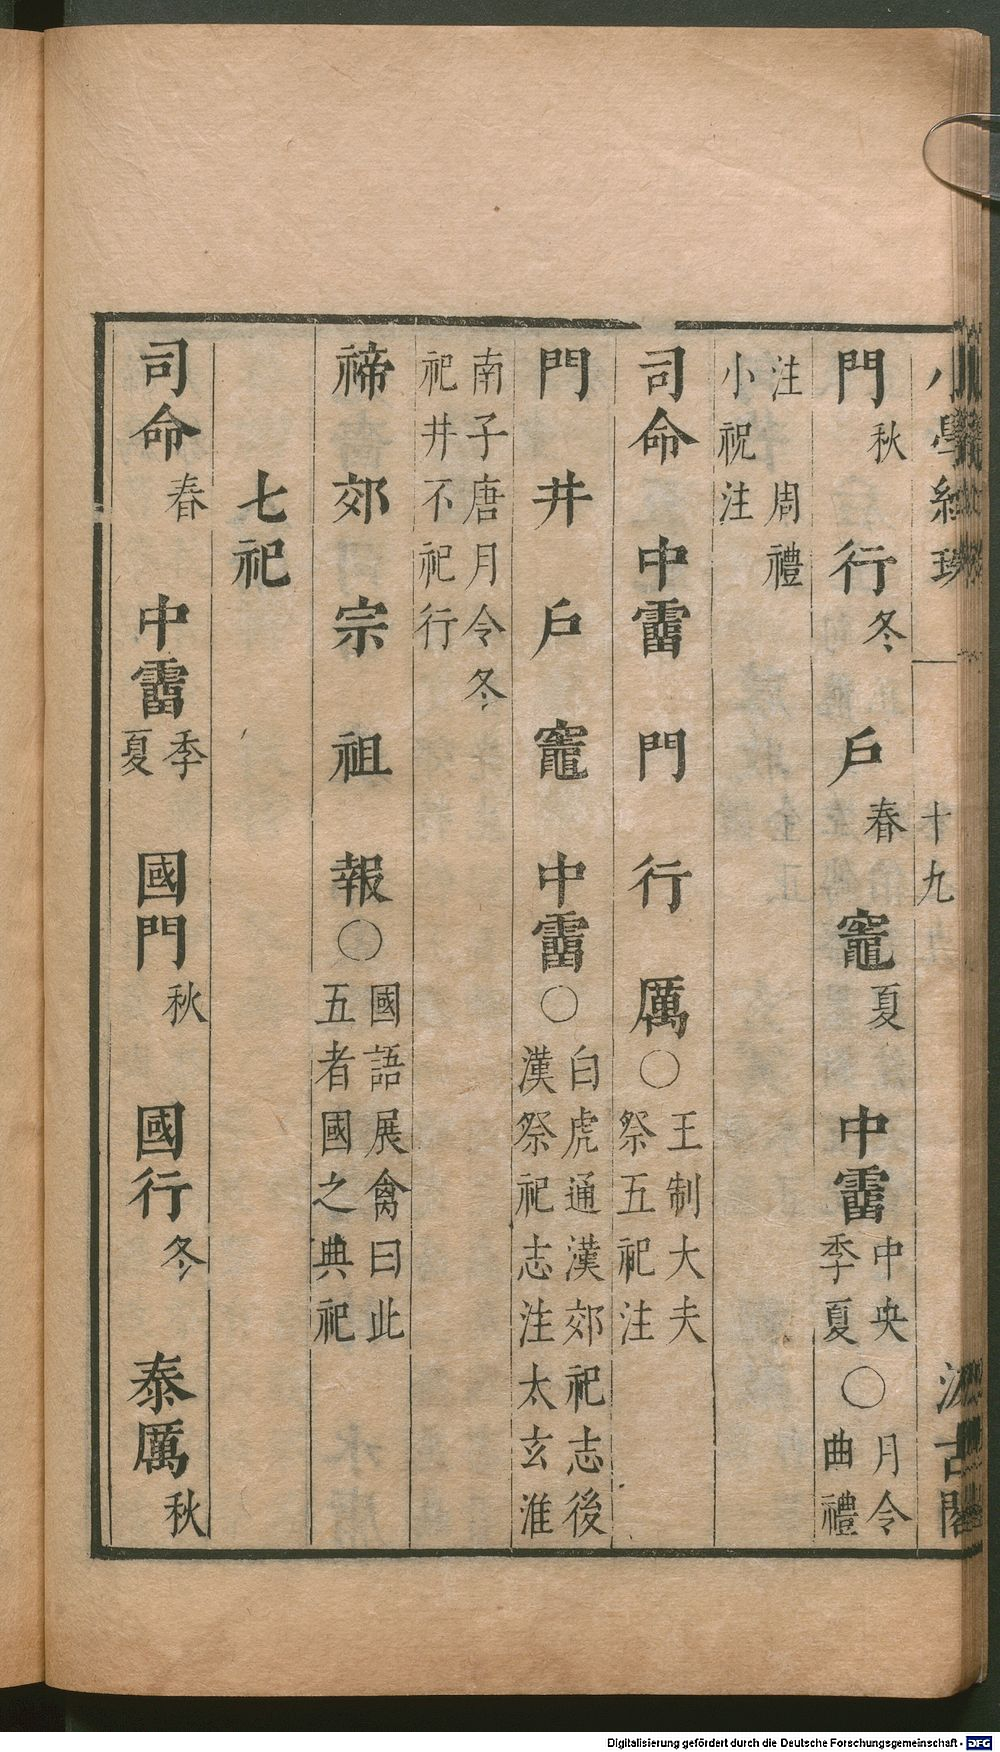 小學紺珠 十九 汲古閣
門秋 行冬 戶春 竈夏 中霤中央季夏〇月令曲禮
注周禮小祝注
司命 中霤 門 行 厲〇王制大夫祭五祀注
門 井 戶 竈 中霤〇白虎通漢郊祀志後漢祭祀志注太玄淮
南子唐月令冬祀井不祀行
禘 郊 宗 祖 報〇國語展禽曰此五者國之典祀
七祀
司命春 中霤季夏 國門秋 國行冬 泰厲秋
Digitalisierung gefördert durch die Deutsche Forschungsgemeinschaft - DFG